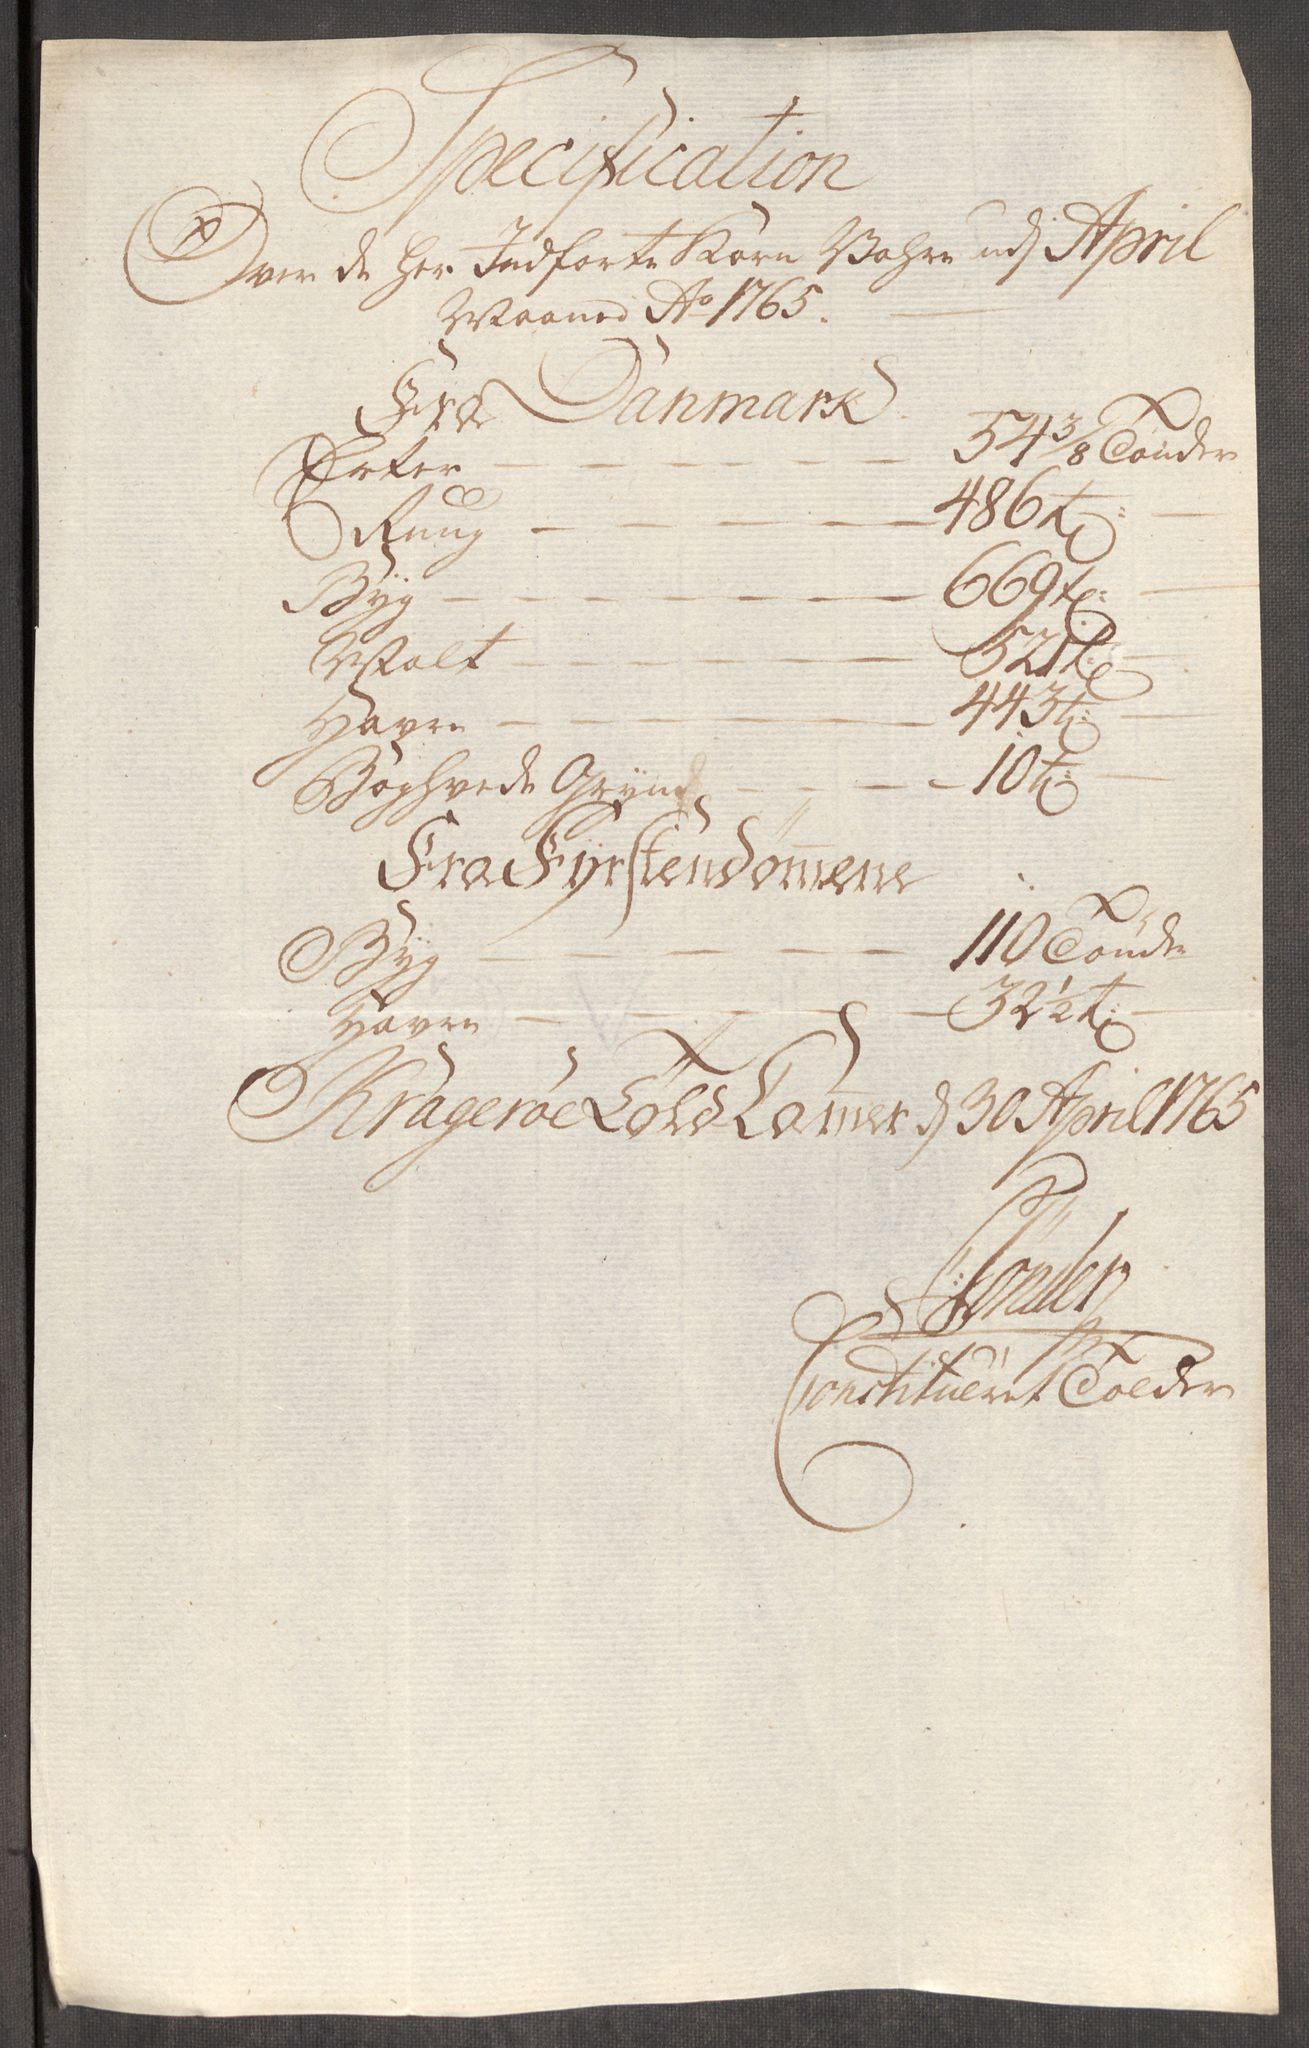 Specification
Over de her Indførte Korn Vahre udj April
Maaned Ao 1765.
Fra Danmark
Erter 54 3/8 Tønder
Ruug 486 t:
Byg 669 t:
Malt 521 t:
Havre 443 t:
Boghvede Gryn 10 t:
Fra Fyrstendømene
Byg 110 Tønde
Havre 32 1/2 t:
Kragerøe Told Camer dj 30 April 1765
Tønder
Constitueret Tolder